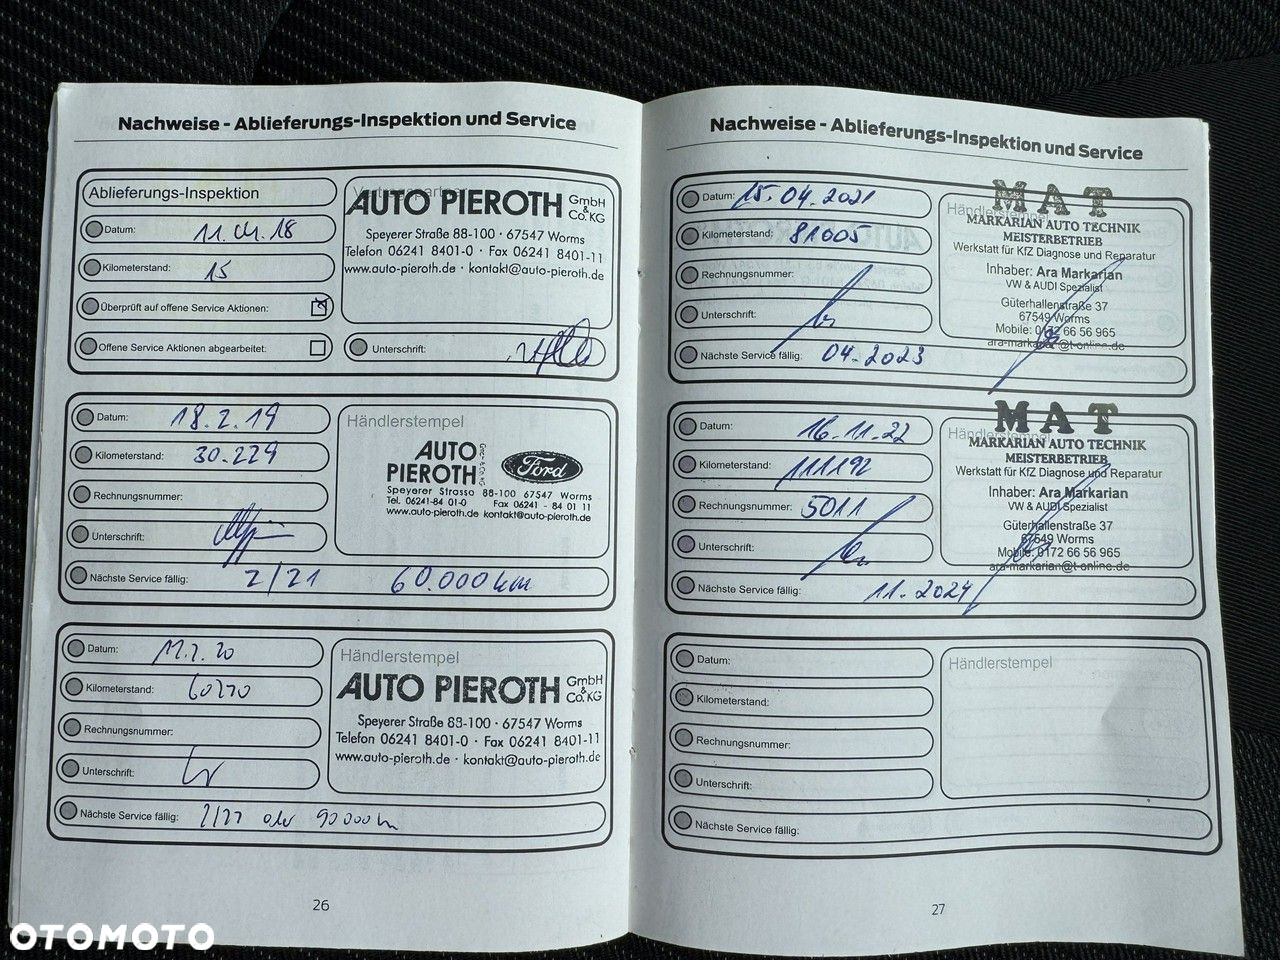 Nachweise - Ablieferungs-Inspektion und Service
Ablieferungs-Inspektion
Datum: 11.04.18
Kilometerstand: 15
Überprüft auf offene Service Aktionen:
Offene Service Aktionen abgearbeitet:
Vertragspartner
AUTO PIEROTH GmbH & Co. KG
Speyerer Straße 88-100 · 67547 Worms
Telefon 06241 8401-0 · Fax 06241 8401-11
www.auto-pieroth.de · kontakt@auto-pieroth.de
Unterschrift:
Datum: 18.2.19
Kilometerstand: 30.229
Rechnungsnummer:
Unterschrift:
Nächste Service fällig: 2/21 60.000 km
Händlerstempel
AUTO
PIEROTH GmbH & Co. KG
Ford
Speyerer Strasse 88-100 67547 Worms
Tel. 06241-84 01-0 Fax 06241 - 84 01 11
www.auto-pieroth.de kontakt@auto-pieroth.de
Datum: 20
Kilometerstand: 60270
Rechnungsnummer:
Unterschrift:
Nächste Service fällig: oder 90000 km
Händlerstempel
AUTO PIEROTH GmbH & Co. KG
Speyerer Straße 88-100 · 67547 Worms
Telefon 06241 8401-0 · Fax 06241 8401-11
www.auto-pieroth.de · kontakt@auto-pieroth.de
26
Nachweise - Ablieferungs-Inspektion und Service
Datum: 15.04.2021
Kilometerstand: 81005
Rechnungsnummer:
Unterschrift:
Nächste Service fällig: 04.2023
Händlerstempel
MAT
MARKARIAN AUTO TECHNIK
MEISTERBETRIEB
Werkstatt für KfZ Diagnose und Reparatur
Inhaber: Ara Markarian
VW & AUDI Spezialist
Güterhallenstraße 37
67549 Worms
Mobile: 0172 66 56 965
ara-markarian@t-online.de
Datum: 16.11.22
Kilometerstand: 111192
Rechnungsnummer: 5011
Unterschrift:
Nächste Service fällig: 11.2024
MAT
MARKARIAN AUTO TECHNIK
MEISTERBETRIEB
Werkstatt für KfZ Diagnose und Reparatur
Inhaber: Ara Markarian
VW & AUDI Spezialist
Güterhallenstraße 37
67549 Worms
Mobile: 0172 66 56 965
ara-markarian@t-online.de
Datum:
Kilometerstand:
Rechnungsnummer:
Unterschrift:
Nächste Service fällig:
Händlerstempel
27
OTOMOTO